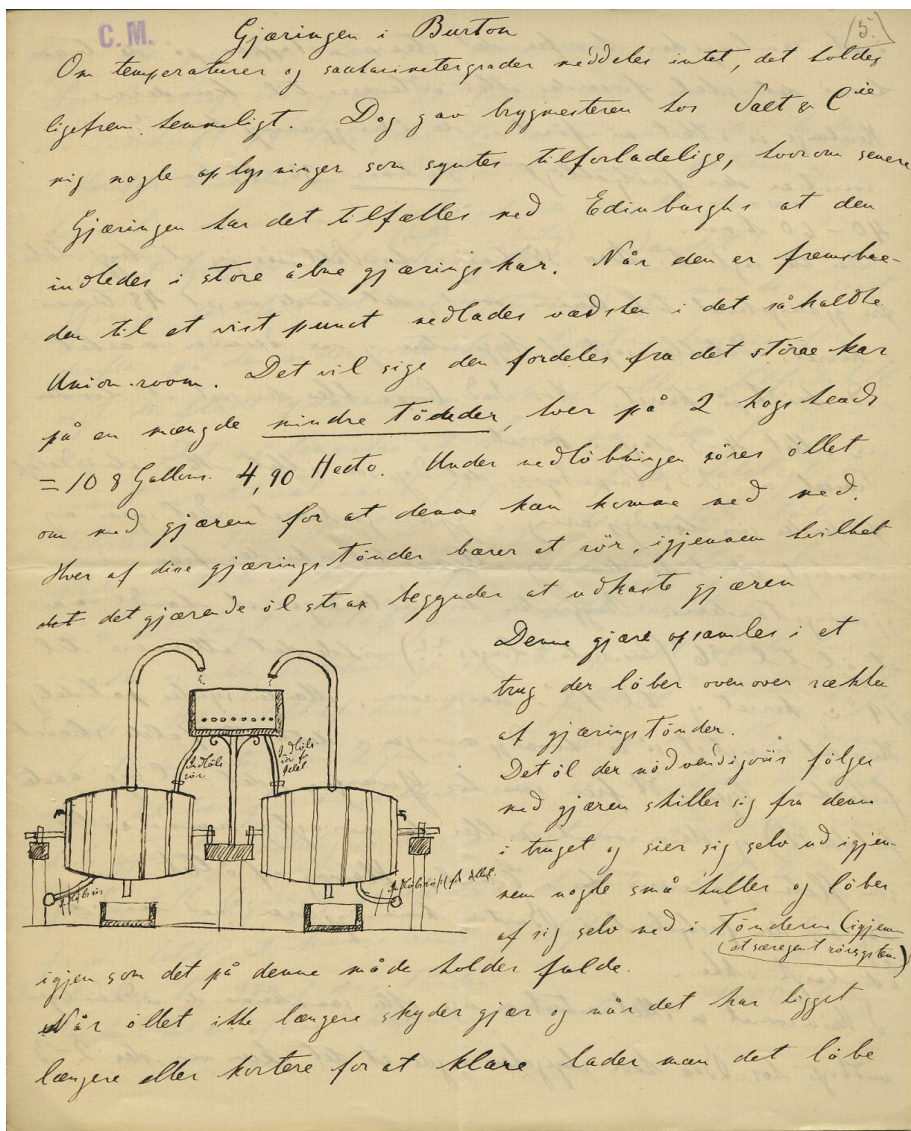 C. M.
5.
Gjæringen i Burton
Om temperaturer og saccharimetergrader meddeles intet, det holdes
ligefrem hemmeligt. Dog gav brygmesteren hos Salt & Cie
mig nogle oplysninger som syntes tilforladelige, hvorom senere
Gjæringen har det tilfælles med Edinburghs at den
indledes i store åbne gjæringskar. Når den er fremskre-
den til et vist punct nedlades vædsken i det såkaldte
Union-room. Det vil sige den fordeles fra det störae kar
på en mængde mindre Tödeder, hver på 2 hogsheads
= 108 Gallons. 4,90 Hecto. Under nedlöbningen röres öllet
om med gjæren for at denne kan komme ned med.
Hver af disse gjæringstönder bærer et rör, igjennem hvilket
det det gjærende öl strax begynder at udkaste gjæren
Denne gjære opsamles i et
trug der löber ovenover rækken
af gjæringstönder.
Det öl der nödvendigviis fölger
med gjæren skiller sig fra denne
i truget og sier sig selv ud igjen-
nem nogle små huller og löber
af sig selv ned i Tönderne (igjennem
et særegent rörsystem)
Indlöbs
rör
Indlöbs
rör for
öllet
igjen som det på denne måde holder fulde.
Når öllet ikke længere skyder gjær og når det har ligget
længere eller kortere for at klare lader man det löbe